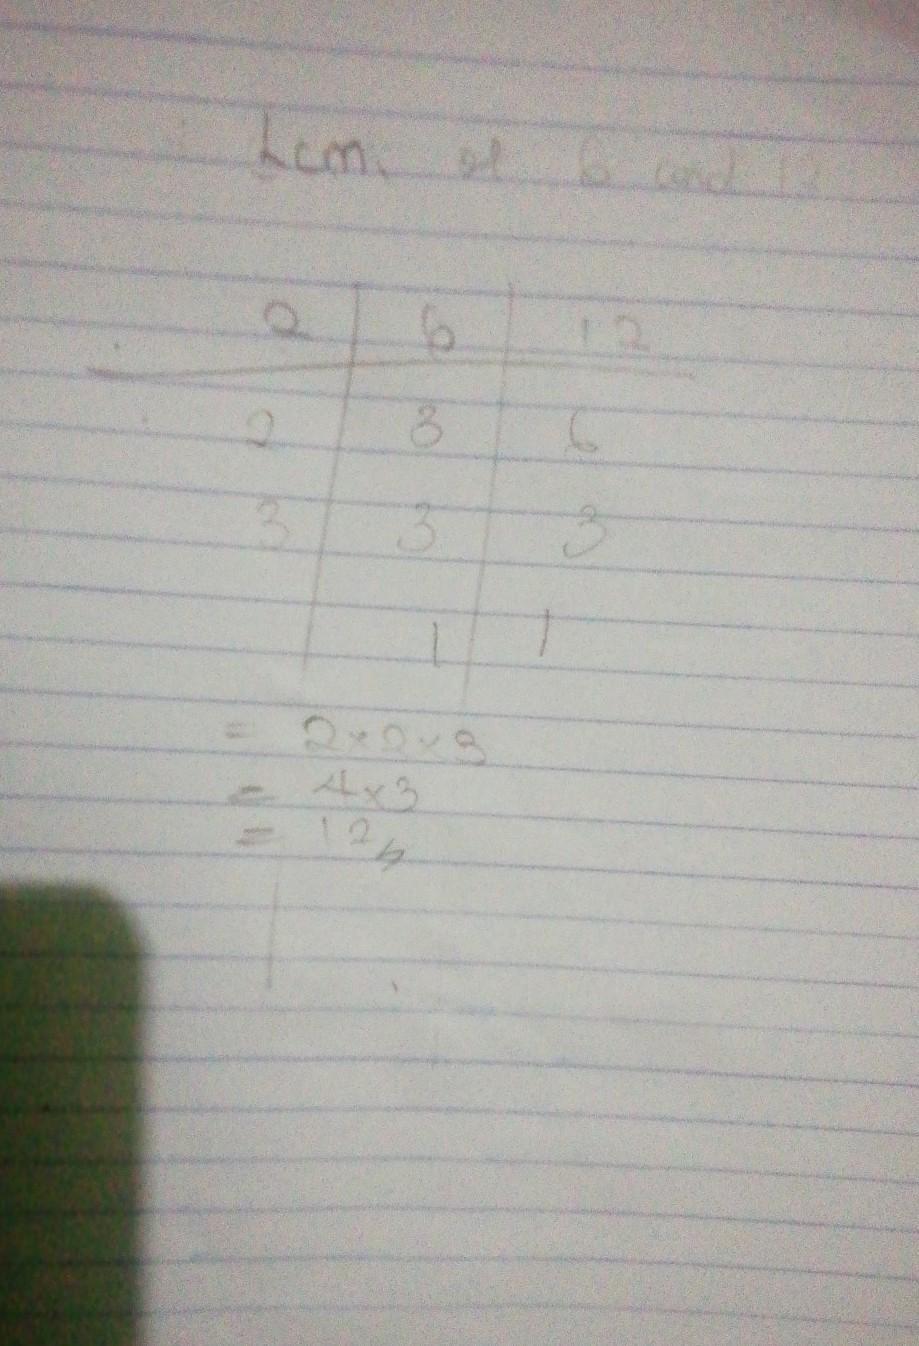 Lcm of 6 and 12
2 6 12
2 3 6
3 3 3
1 1
= 2×2×3
= 4×3
= 12